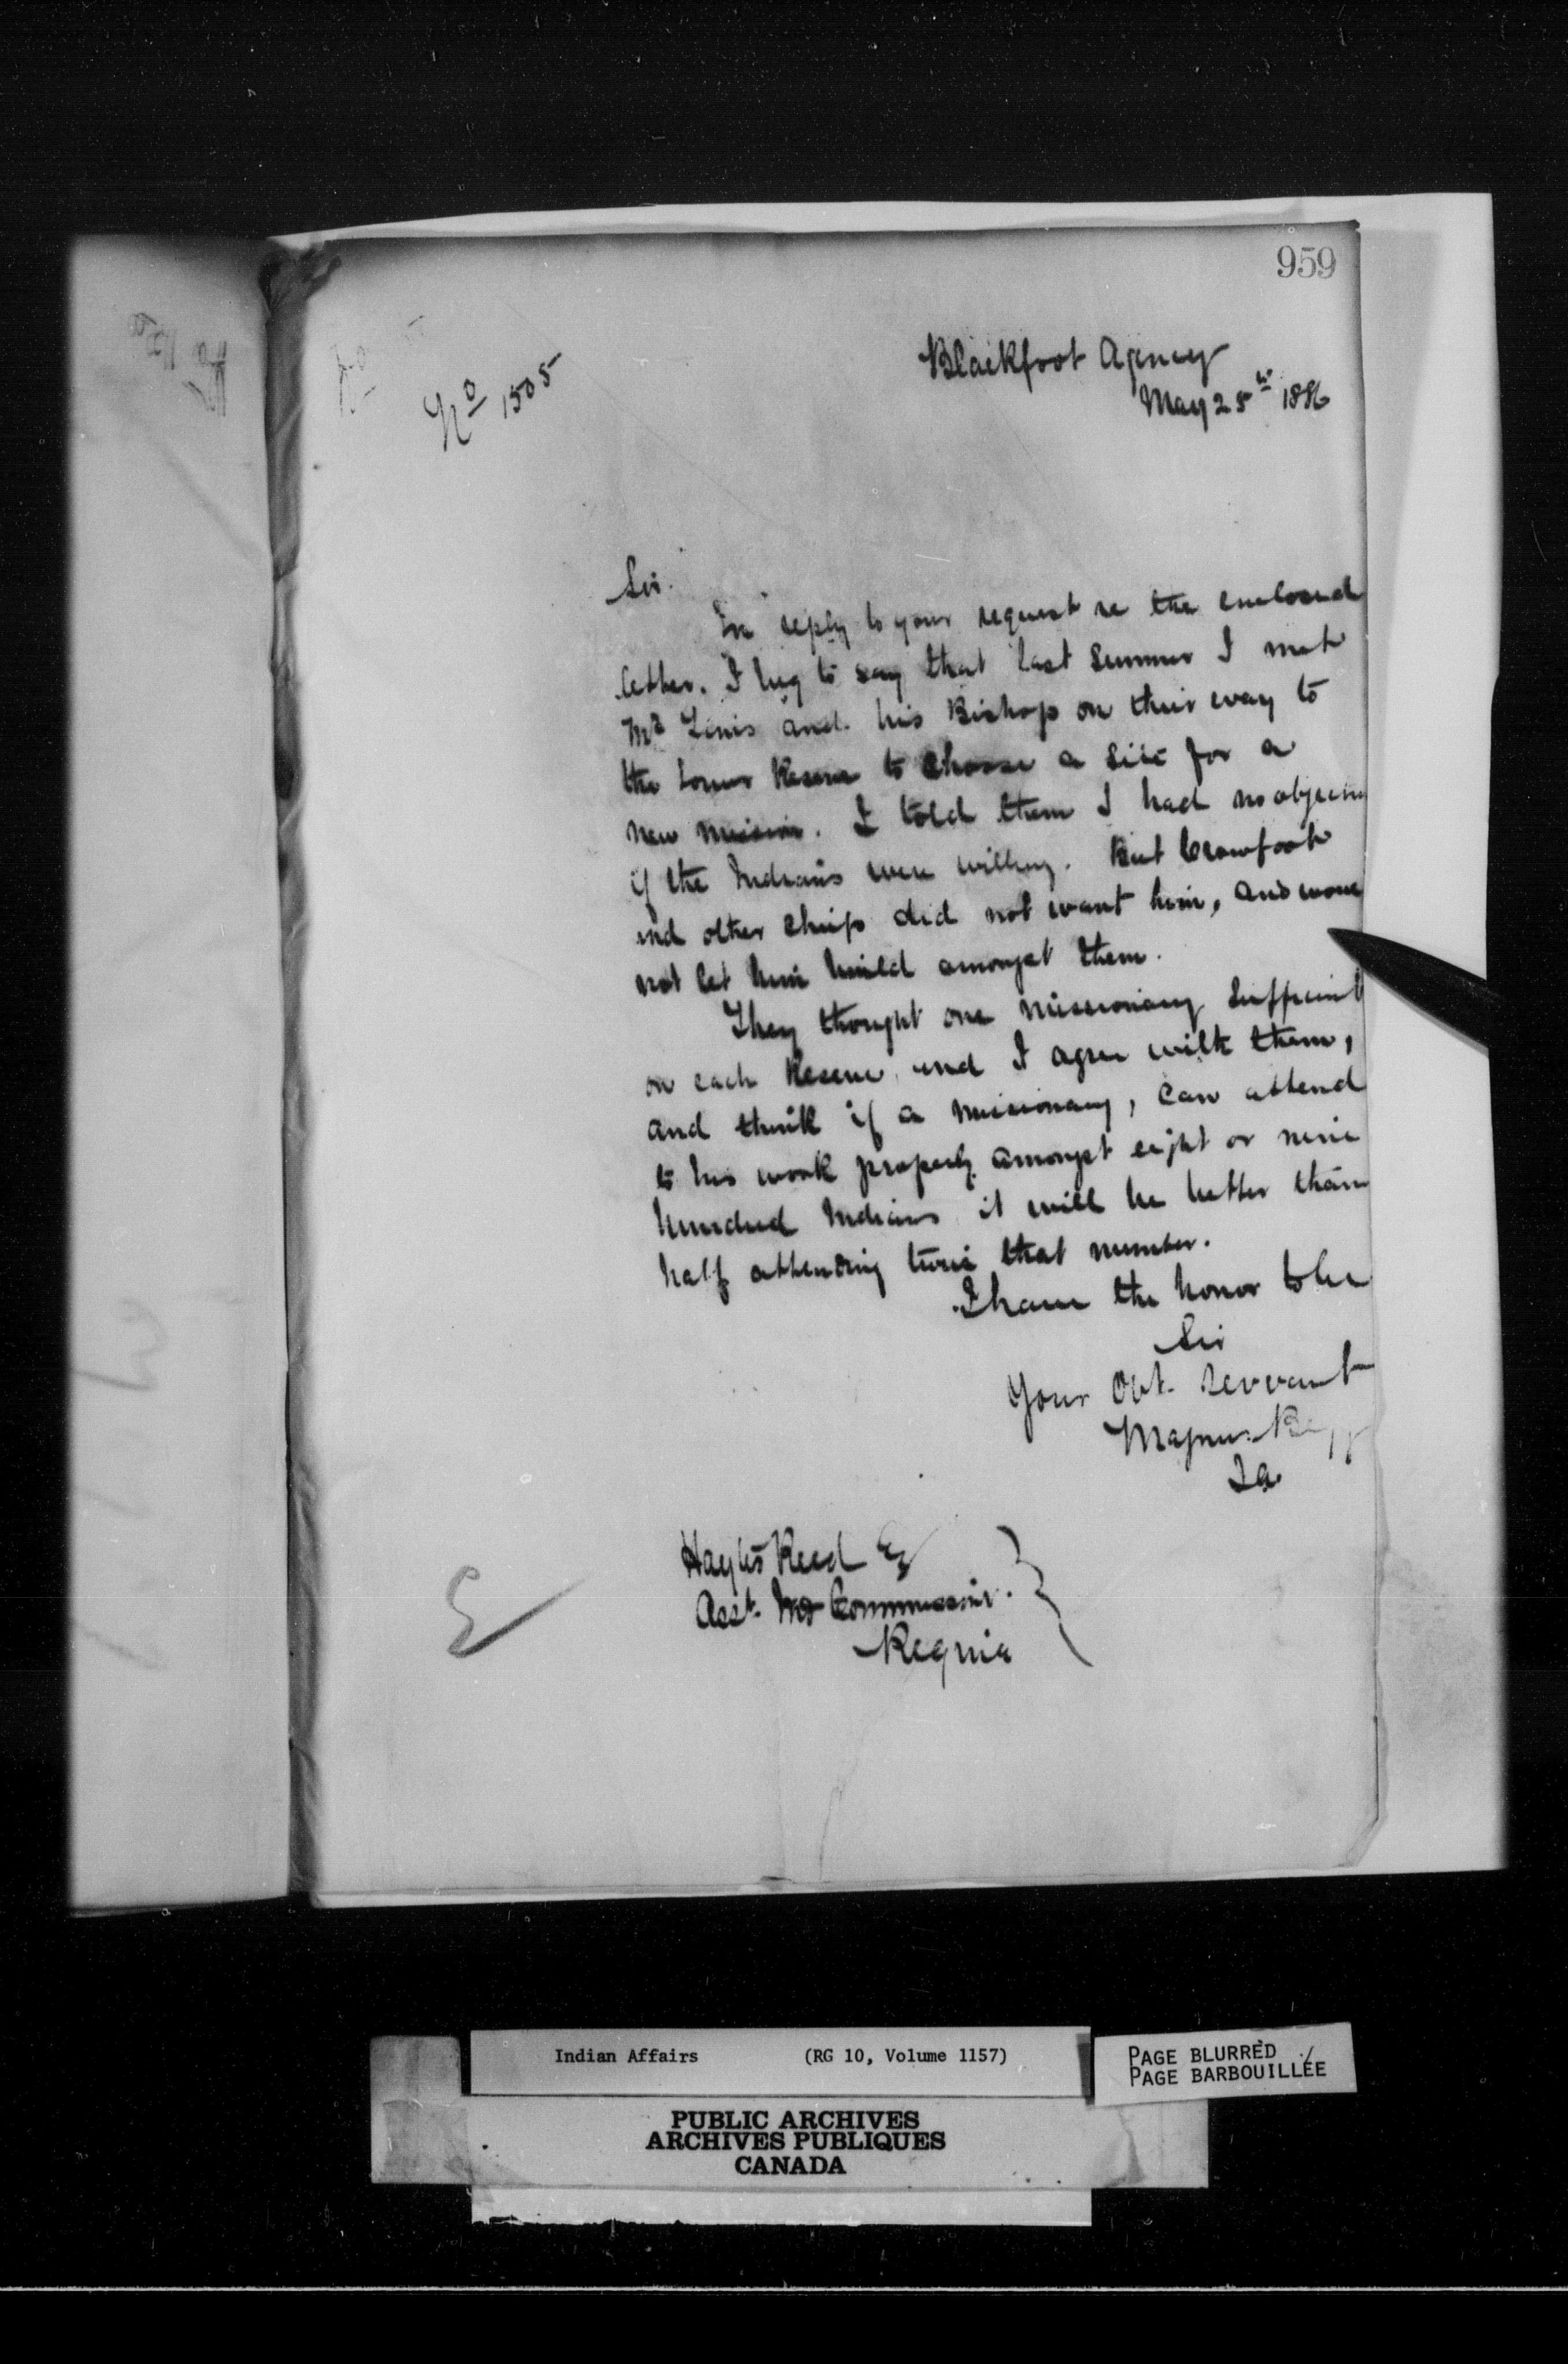 959
Blackfoot Agency
May 25th 1886
No 1505
Sir.
In reply to your request re the enclosed
letter. I beg to say that last summer I met
Mr and his Bishop on their way to
the Lower Reserve to choose a site for a
new mission. I told them I had no objection
if the Indians were willing. But Crowfoot
and other chiefs did not want him, and would
not let him build amongst them.
They thought one missionary sufficient
on each Reserve and I agree with them,
and think if a missionary, can attend
to his work properly amongst eight or nine
hundred Indians it will be better than
half attending twice that number.
I have the honor to be
Sir
Your Obt. Servant
Magnus Begg
I a.
Hayter Reed Esq
Asst. Ind Commissir.
Regina
Indian Affairs (RG 10, Volume 1157)
PAGE BLURRED
PAGE BARBOUILLÉE
PUBLIC ARCHIVES
ARCHIVES PUBLIQUES
CANADA